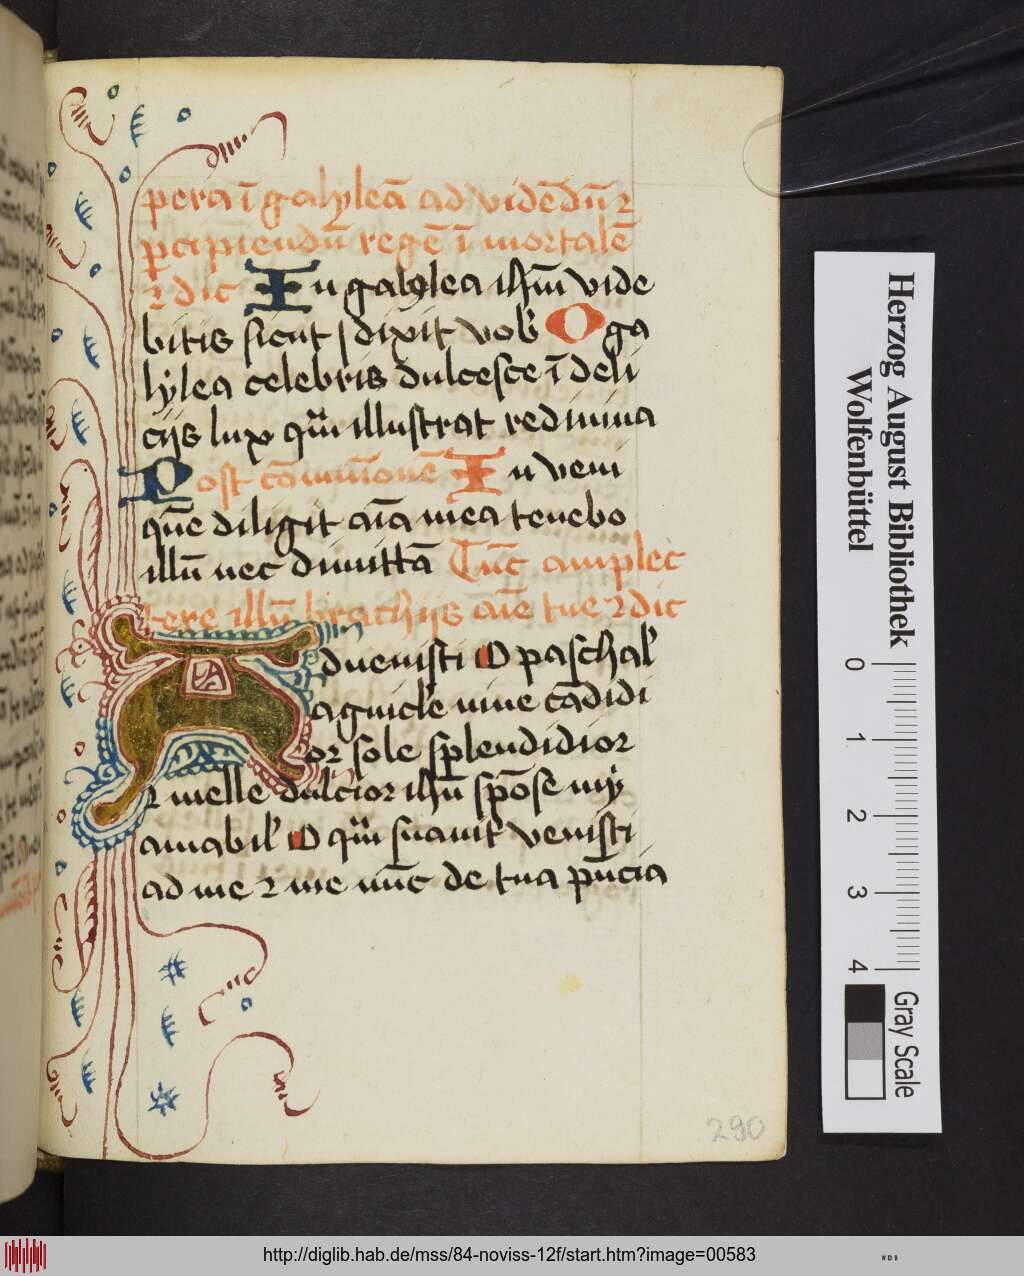 pera ī galyleā ad vidēdū ⁊
ꝑcipiendū regē īmortalē
⁊ dic In galylea ihm̄ vide
bitis sicut dixit vob' O ga
lylea celebris dulcesce ī deli
cijs lux qm̄ illustrat red
Post cōmunionē In veni
quē diligit aīa mea tenebo
illū nec dimittā Tūc amplec
tere illū brachijs aīe tue ⁊ dic
Aduenisti O paschal'
agnicle niue cādidi
or sole splendidior
⁊ melle dulcior ihū spōse mỹ
amabil' O qm̄ suauit' venisti
ad me ⁊ me nūc de tua
290
Herzog August Bibliothek
Wolfenbüttel
0 1 2 3 4
Gray Scale
http://diglib.hab.de/mss/84-noviss-12f/start.htm?image=00583